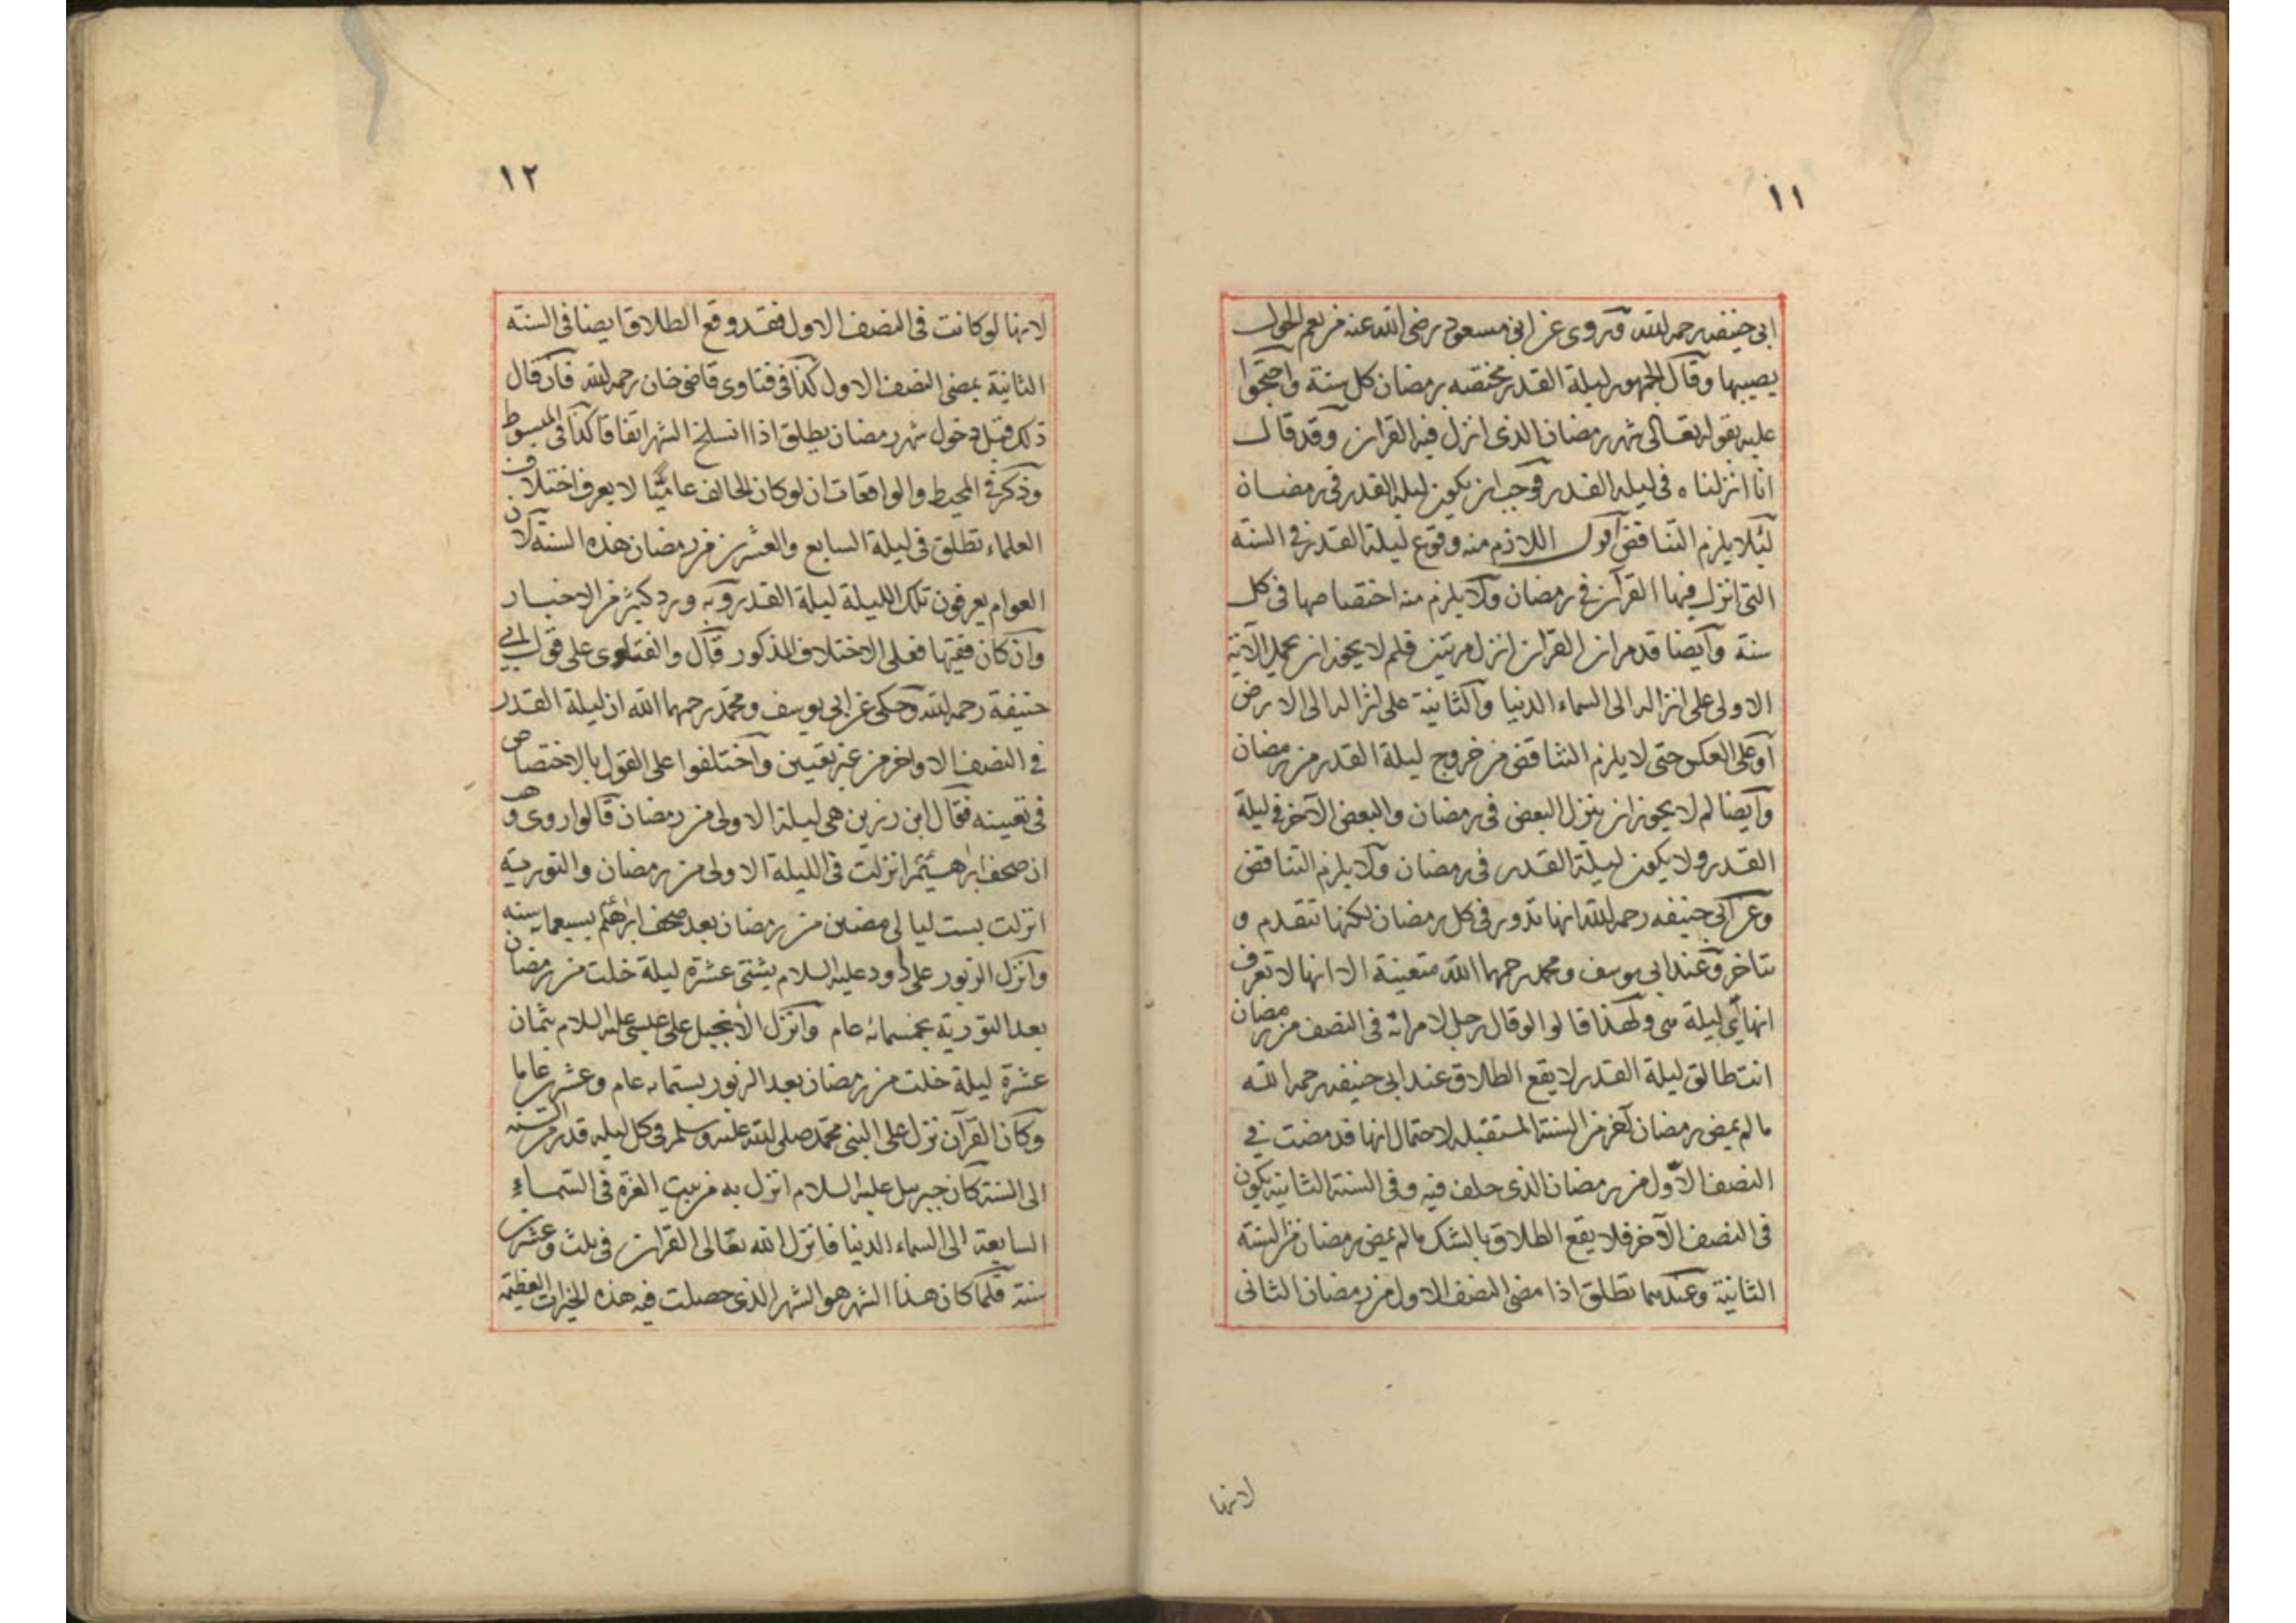 ١١
ابى حنيفه رحمه الله وروى عن ابن مسعود رضى الله عنه من يقم الحول
يصيبها وقال الجمهور ليلة القدر مختصه برمضان كل سنة واحتجوا
عليه بقوله تعالى شهر رمضان الذى انزل فيه القران وقد قال
انا انزلناه فى ليله القدر فوجب ان يكون ليلة القدر فى رمضان
لئلا يلزم التناقض اقول اللازم منه وقوع ليلة القدر فى السنة
التى انزل فيها القرآن فى رمضان ولا يلزم منه اختصاصها فى كل
سنة وايضا قد مر ان القران انزل مرتين فلم لا يجوز ان يحمل الآية
الاولى على انزاله الى السماء الدنيا والثانية على انزاله الى الارض
او على العكس حتى لا يلزم التناقض من خروج ليلة القدر من رمضان
وايضا لم لا يجوز ان ينزل البعض فى رمضان والبعض الآخر فى ليلة
القدر ولا يكون ليلة القدر فى رمضان ولا يلزم التناقض
وعن ابى حنيفه رحمه الله انها تدور فى كل رمضان لكنها تتقدم و
تتاخر وعند ابى يوسف ومحمد رحمهما الله متعينة الا انها لا تعرف
انها اى ليلة هى ولهذا قالوا لو قال رجل لامراته فى النصف من رمضان
انت طالق ليلة القدر لا يقع الطلاق عند ابى حنيفه رحمه الله
ما لم يمض رمضان آخر من السنة المستقبله لاحتمال انها قد مضت فى
النصف الاول من رمضان الذى حلف فيه وفى السنة الثانيه يكون
فى النصف الآخر فلا يقع الطلاق بالشك ما لم يمض رمضان من السنة
الثانية وعندهما تطلق اذا مضى النصف الاول من رمضان الثانى
لانها
١٢
لانها لو كانت فى النصف الاول فقد وقع الطلاق ايضا فى السنه
الثانية بمضى النصف الاول كذا فى فتاوى قاضى خان رحمه الله فان قال
ذلك قبل دخول شهر رمضان يطلق اذا انسلخ الشهر اتفاقا كذا فى المبسوط
وذكر فى المحيط والواقعات ان لو كان الحالف عاميّا لا يعرف اختلاف
العلماء تطلق فى ليلة السابع والعشرين من رمضان هذه السنة لان
العوام يعرفون تلك الليلة ليلة القدر وبه ورد كثير من الاخبار
وان كان فقيها فعلى الاختلاف المذكور قال والفتاوى على قول ابى
حنيفة رحمه الله وحكى عن ابى يوسف ومحمد رحمهما الله ان ليلة القدر
فى النصف الاواخر من غير تعيين واختلفوا على القول بالاختصاص
فى تعيينه فقال ابن رزين هى ليلة الاولى من رمضان قالوا روى وهب
ان صحف ابرهيم انزلت فى الليلة الاولى من رمضان والتورية
انزلت بست ليالى مضين من رمضان بعد صحف ابرهيم بسبعمايه سنه
وانزل الزبور على داود عليه السلام بثنتى عشرة ليلة خلت من رمضان
بعد التورية بخمسمائه عام وانزل الانجيل على عيسى عليه السلام بثمان
عشرة ليلة خلت من رمضان بعد الزبور بستمائه عام وعشرين عاما
وكان القرآن نزل على النبى محمد صلى الله عليه وسلم فى كل ليله قدر من السنه
الى السنة كان جبريل عليه السلام انزل به من بيت العزة فى السماء
السابعة الى السماء الدنيا فانزل الله تعالى القران فى ثلث وعشرين
سنة فلما كان هذا الشهر هو الشهر الذى حصلت فيه هذه الخيرات العظيمة